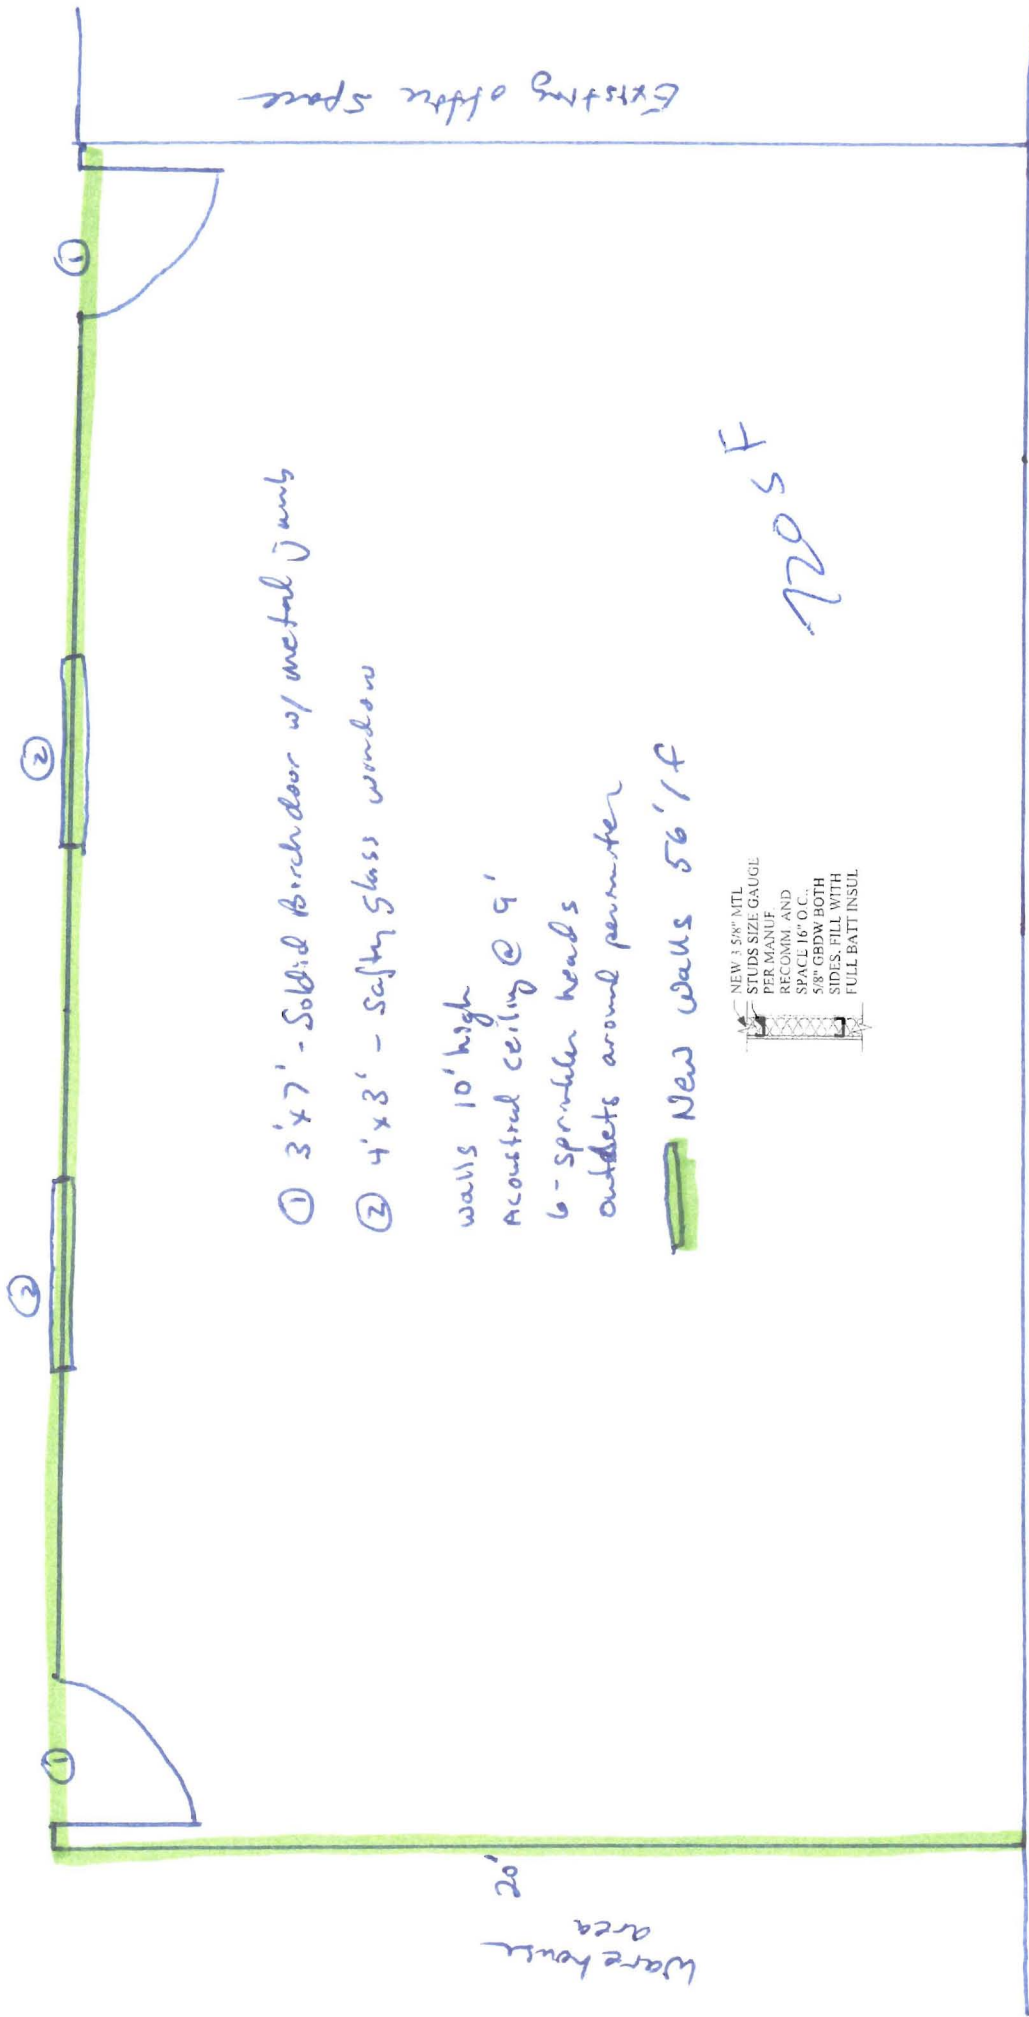 Existing office space
①
②
②
①
① 3'x7' - Solid Birch door w/ metal jamb
② 4'x3' - Safty glass window
walls 10' high
Acoustical ceiling @ 9'
6 - sprinkler heads
outlets around perimeter
New walls 56' lf
NEW 3 5/8" MTL
STUDS SIZE GAUGE
PER MANUF.
RECOMM. AND
SPACE 16" O.C.,
5/8" GBDW BOTH
SIDES. FILL WITH
FULL BATT INSUL
720 SF
20'
Warehouse
area